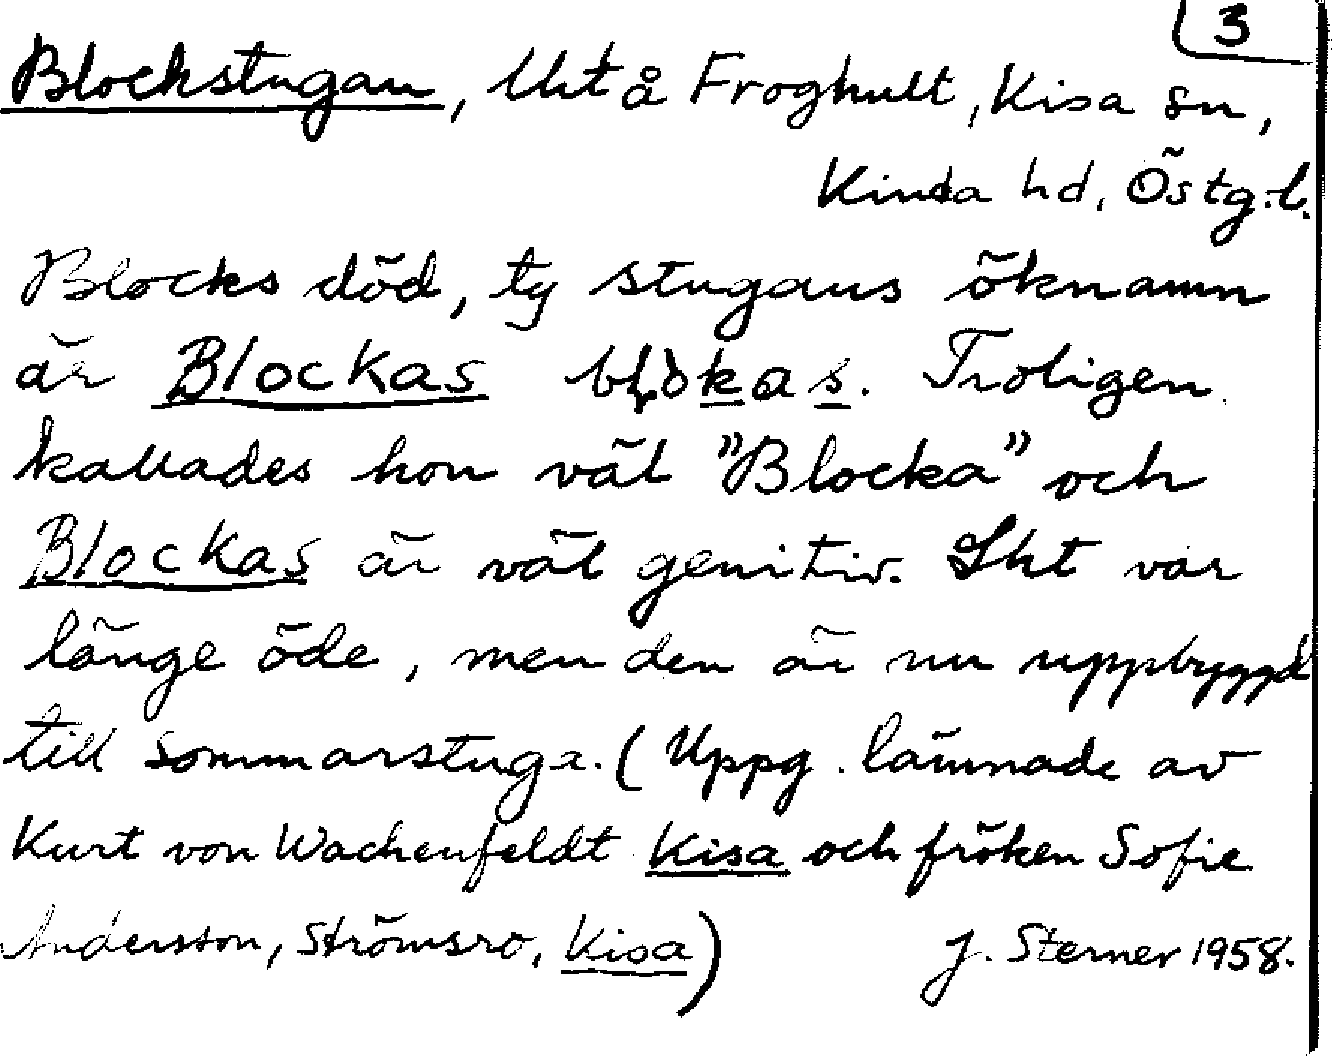 3
Blockstugan, Lht å Froghult, Kisa sn,
Kinda hd, Östg.l.
Blocks död, ty stugans öknamn
är Blockas blokas. Troligen
kallades hon väl "Blocka" och
Blockas är väl genitiv. Lht var
länge öde, men den är nu uppbyggd
till sommarstuga. (Uppg. lämnade av
Kurt von Wachenfeldt Kisa och fröken Sofie
Andersson, Strömsro, Kisa) J. Sterner 1958.